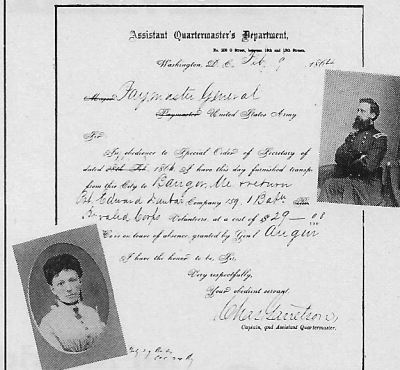 Assistant Quartermaster's Department,
No. 200 G Street, between 18th and 19th Streets.
Washington, D. C. Feb. 9 1864
Paymaster General
Paymaster United States Army
Sir
In obedience to Special Order of Secretary of
dated Feb. 1864, I have this day furnished transpo
from this City to Bangor Me & return
Pvt. Edward Company 159, 1 Batt.
Invalid Corps Volunteers at a cost of $29
is on leave of absence, granted by Gen'l Augur
I have the honor to be, Sir,
Very respectfully,
Your obedient servant,
Chas Garretson,
Captain, and Assistant Quartermaster.